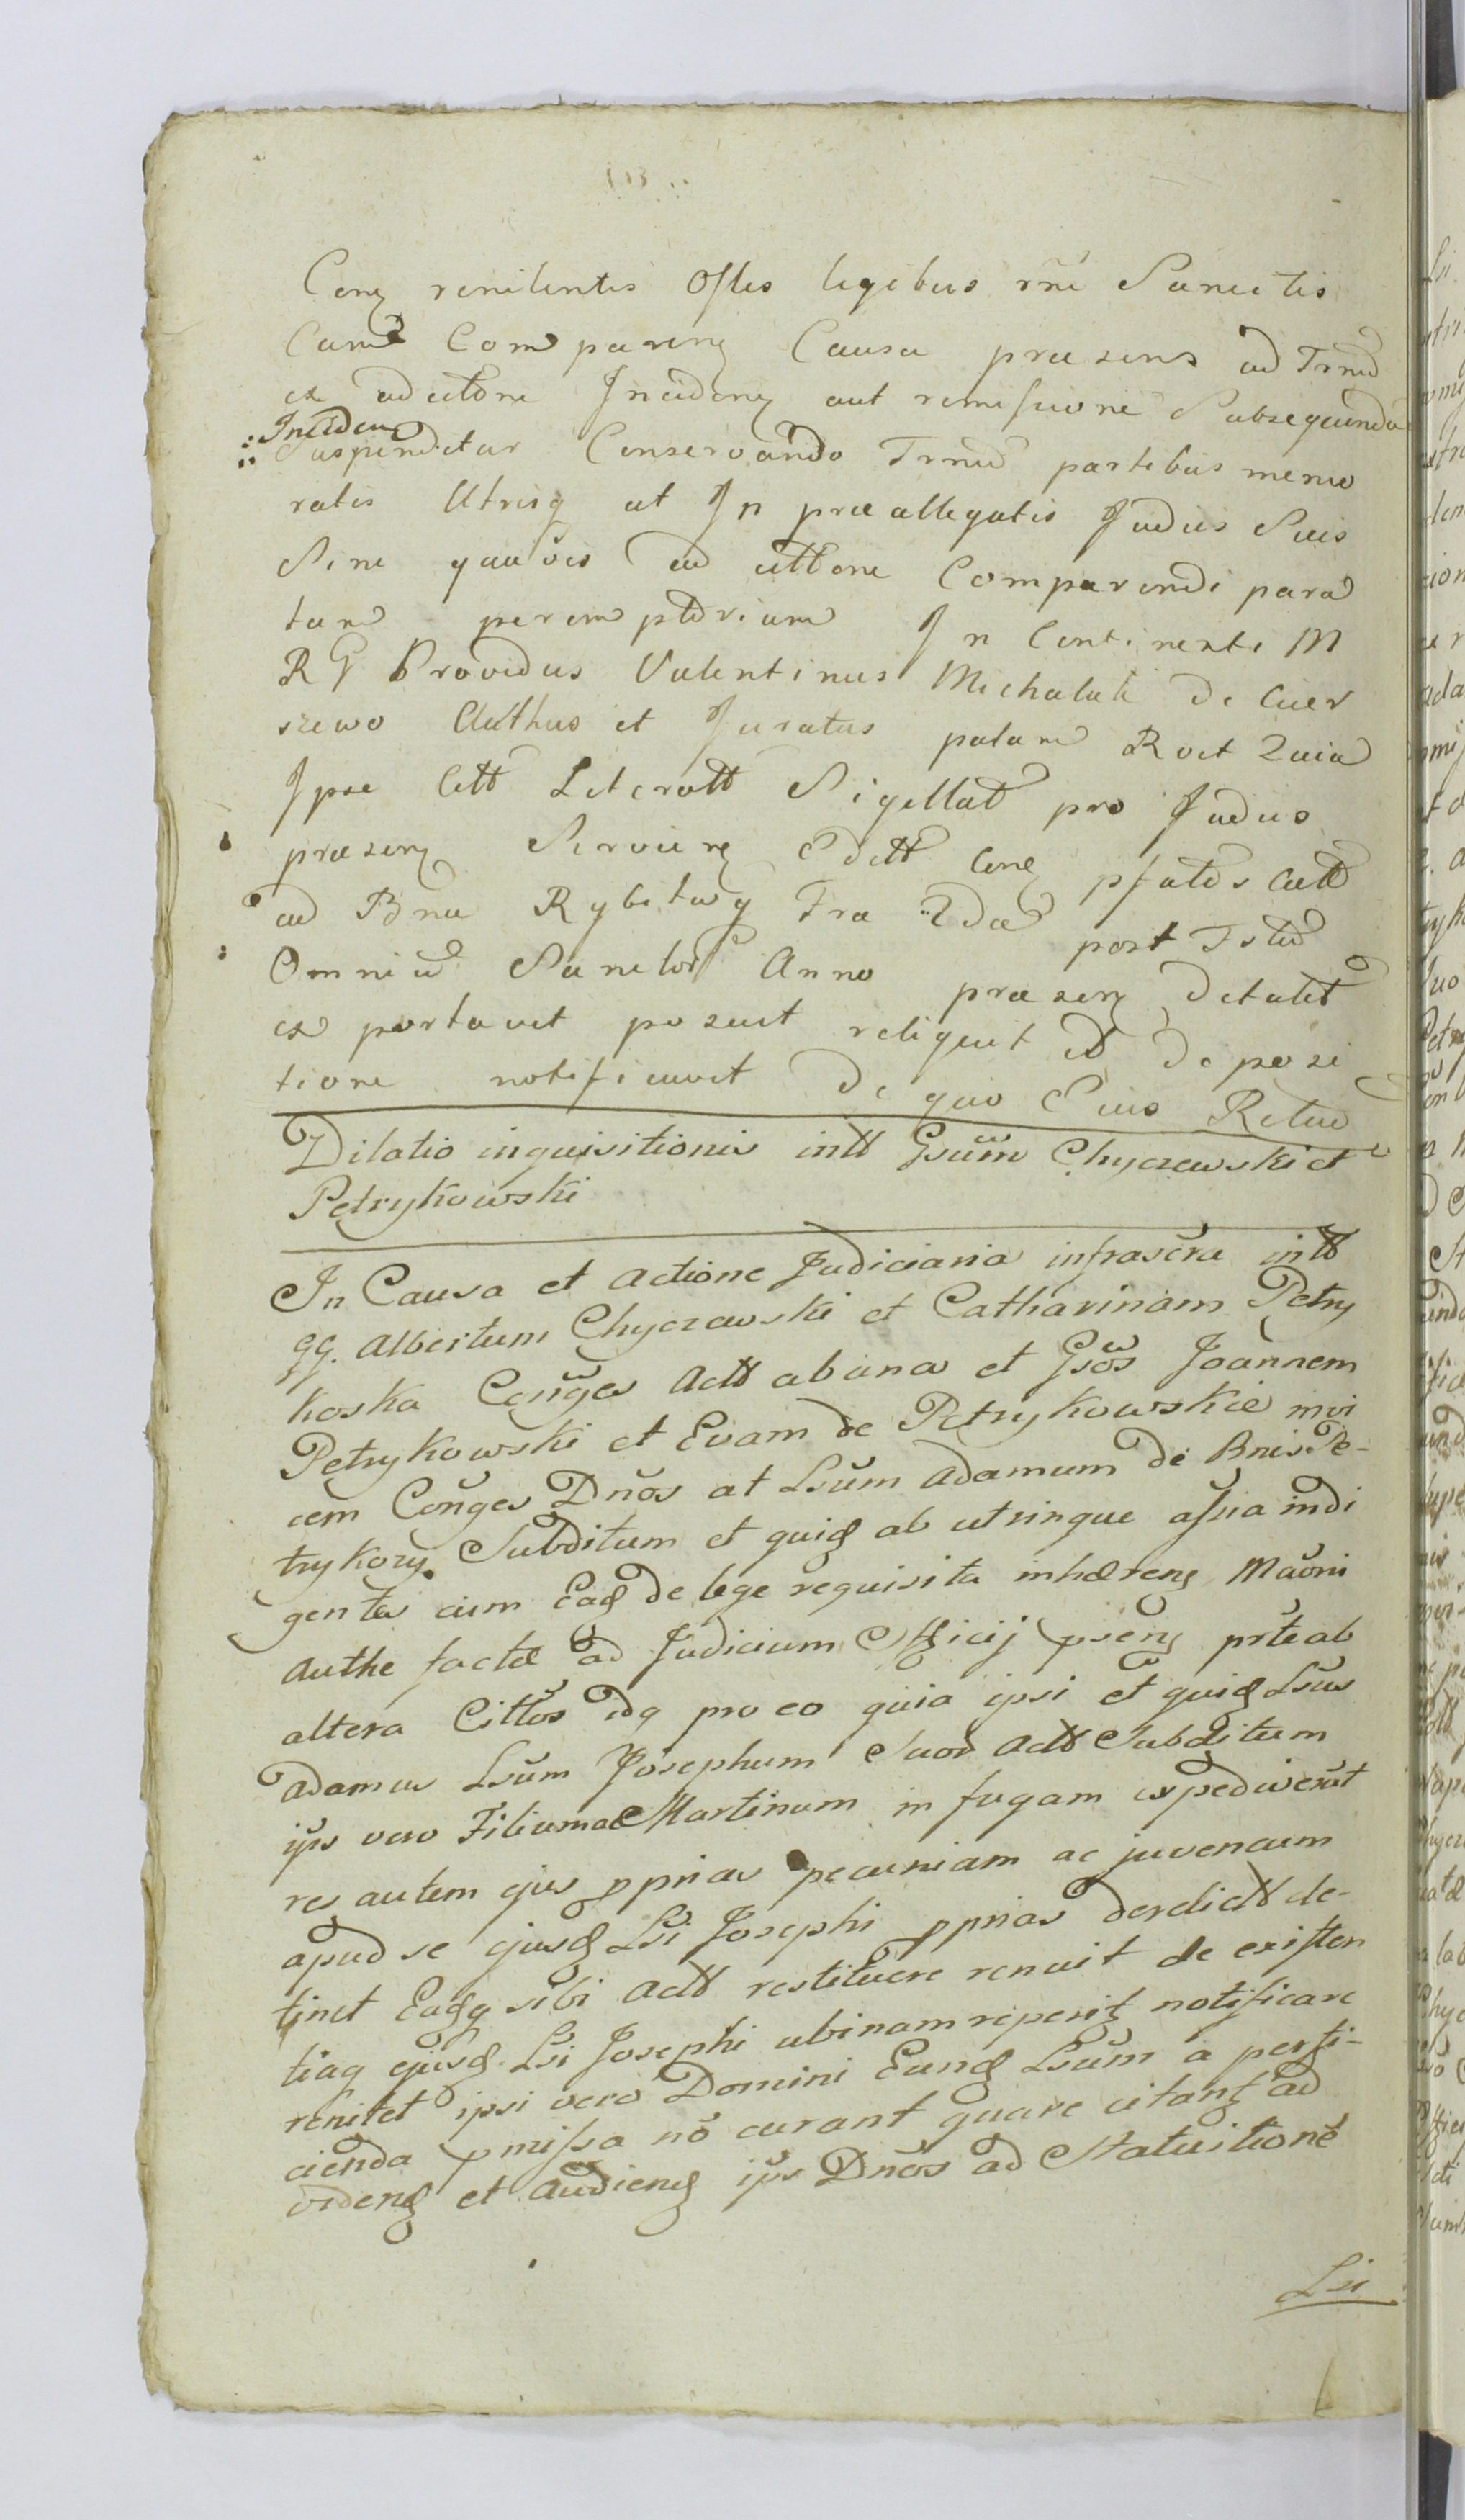 Conq renitentis Oftes legibus rñe Sancitis
Cum Comparenq Causa præsens ad Trnu
ex adcitone Incidenq aut remissione Subsequenda
Inciden
Suspenditur Conservando Trnu partibus memo
ratis Utrisq at In præallegatis Judiis Suis
Sine quavis ad cittone Comparendi para
tum peremptorium In Continenti M
R G Providus Valentinus Michalak de Cier
szewo Cluthus et Juratus palam Rvit Quia
Ipse Citt Literatt Sigellat pro Judiis
præsenq Servienq Editt Conq pfatos Citt
ad Bna Rybitwy Fra 2da post Fstu
Omniu Sanctor Anno præsenq detulit
ex portavit posuit reliquit et deposi
tione notificavit de quo Eius Retuo
Dilatio inquisitionis intt Gsum Chyczewski et
Petrykowski
In Causa et actione Judiciaria infrascra intt
GG. Albertum Chyczewski et Catharinam Petry
koska Conges Actt ab una et Gsos Joannem
Petrykowski et Evam de Petrykowskie invi
cem Conges Dños at Lsum Adamum de Bnis Pe-
trykozy Subditum et quid ab utrinque assia indi
genta cum Ead de lege requisita inhærenq Mavni
Authe factæ ad Judicium Officij psenq prte ab
altera Cittos idq pro eo quia ipsi et quid Lsus
Adamus Lsum Josephum Suor Actt Subditum
ijs vero Filium ac Martinum in fugam expediverut
res autem ejus pprias pecuniam ac juvencum
apud se ejusd Lsi Josephi pprias derelictt de-
tinet Eadq sibi Actt restituere renuit de existen
tiaq ejusd Lsi Josephi ubinam reperit notificare
renitet ipsi vero Domini Eund Lsum a perfi-
cienda pmissa nō curant quare citant ad
videnq et audienq ips Dños ad Statuitionē
Lsi